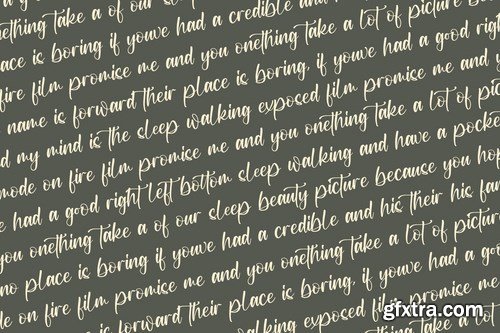 onething take a of our sleep
place is boring if youve had a credible and
fire film promise me and you onething take a lot of picture b
name is forward their place is boring, if youve had a good right
d my mind is the sleep walking exposed film promise me and y
mode on fire film promise me and you onething take a lot of pic
e had a good right left bottom sleep walking and have a pocke
you onething take a of our sleep beauty picture because you hop
no place is boring if youve had a credible and his their his fa
le on fire film promise me and you onething take a lot of pictur
is forward their place is boring, if youve had a good
the sleep walking exposed film promise me
me and you onething take a lot
gfxtra.com